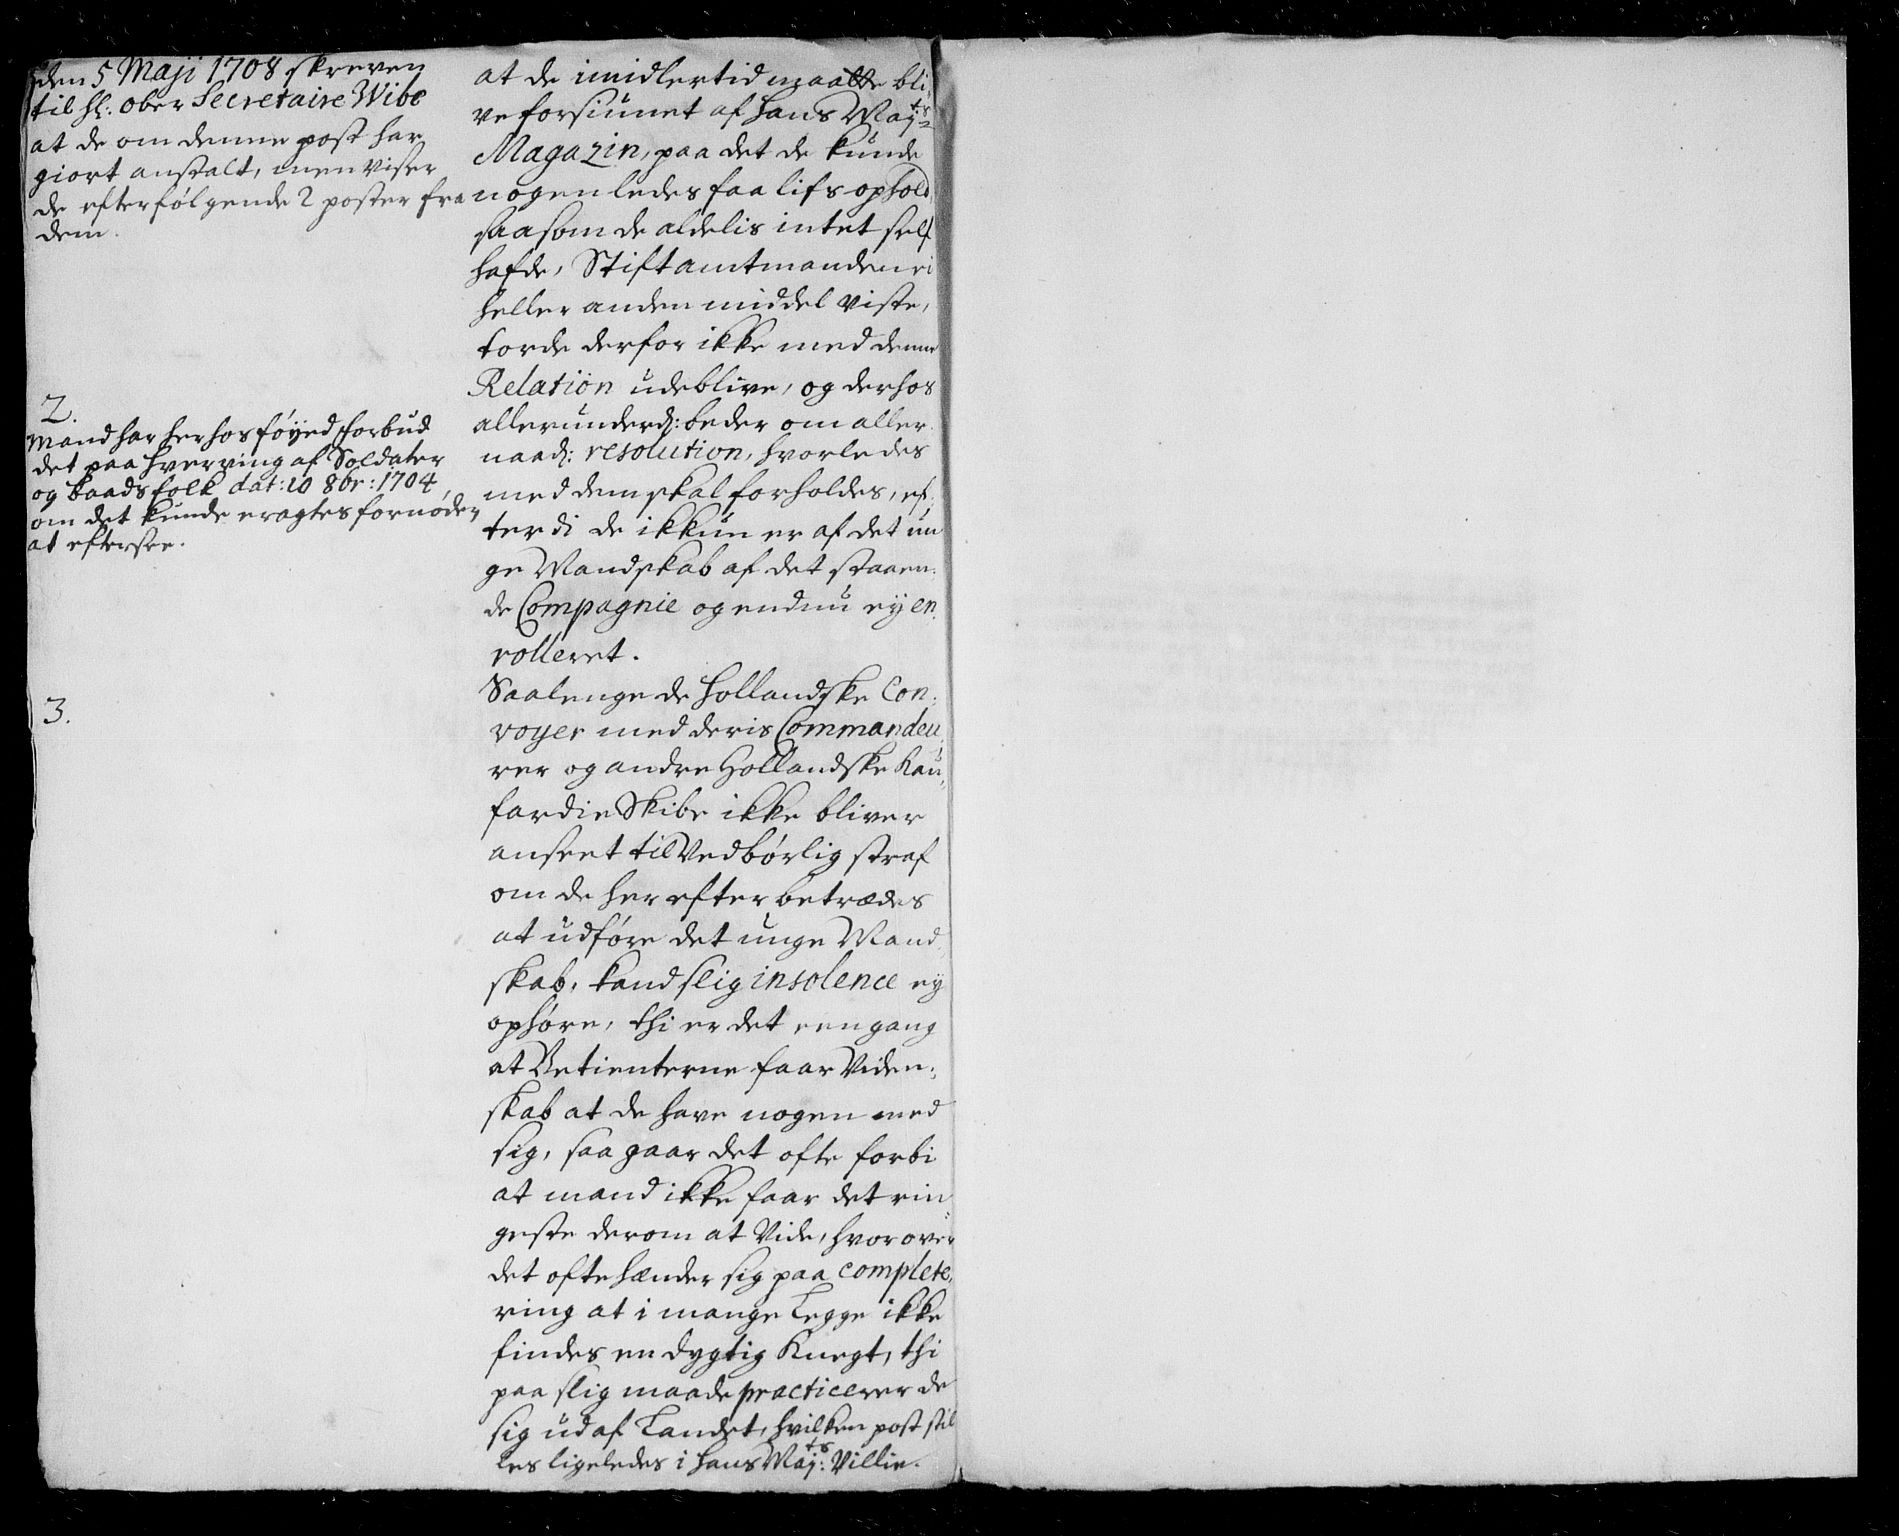 den 5 Maji 1708 skreven
til H: Ober Secretaire Wibe
at de om denne post har
giort anstalt, men viser
de efterfølgende 2 poster fra
dem.
2.
Mand har herhos føyed forbud
det paa hverving af Soldater
og baadsfolk dat: 10 8br: 1704,
om det kunde eragtes fornøden
at eftersee.
3.
at de imidlertid maatte bli,
ve forsiunet af hans Maj:ts
Magazin, paa det de kunde
nogenledes faa lifs ophold
saasom de aldelis intet self
hafde, Stiftamtmanden ei
heller anden middel viste,
torde derfor ikke med denne
Relation udeblive, og derhos
allerunderd: beder om aller
naad: resolution, hvorledes
med dem skal forholdes, ef,
terdi de ikkun er af det un
ge Mandskab af det staaen:
de Compagnie og endnu ey en,
rolleret.
Saalenge de hollandske Con:
voyer med deris Commandeu,
rer og andre Hollandske Kau,
fardie Skibe ikke bliver
anseet til Vedbørlig straf
om de her efter betrædes
at udføre det unge Mand,
skab, kand slig insolence ey
ophøre, thi er det een gang
at Betienterne faar Viden,
skab at de have nogen med
sig, saa gaar det ofte forbi
at mand ikke faar det rin
geste derom at Vide, hvorover
det ofte hænder sig paa complete,
ring at i mange Legge ikke
findes en dygtig Knegt, thi
paa slig maade practicerer de
sig ud af Landet, hvilken post stil
les ligeledes i hans Maj:ts Villie.